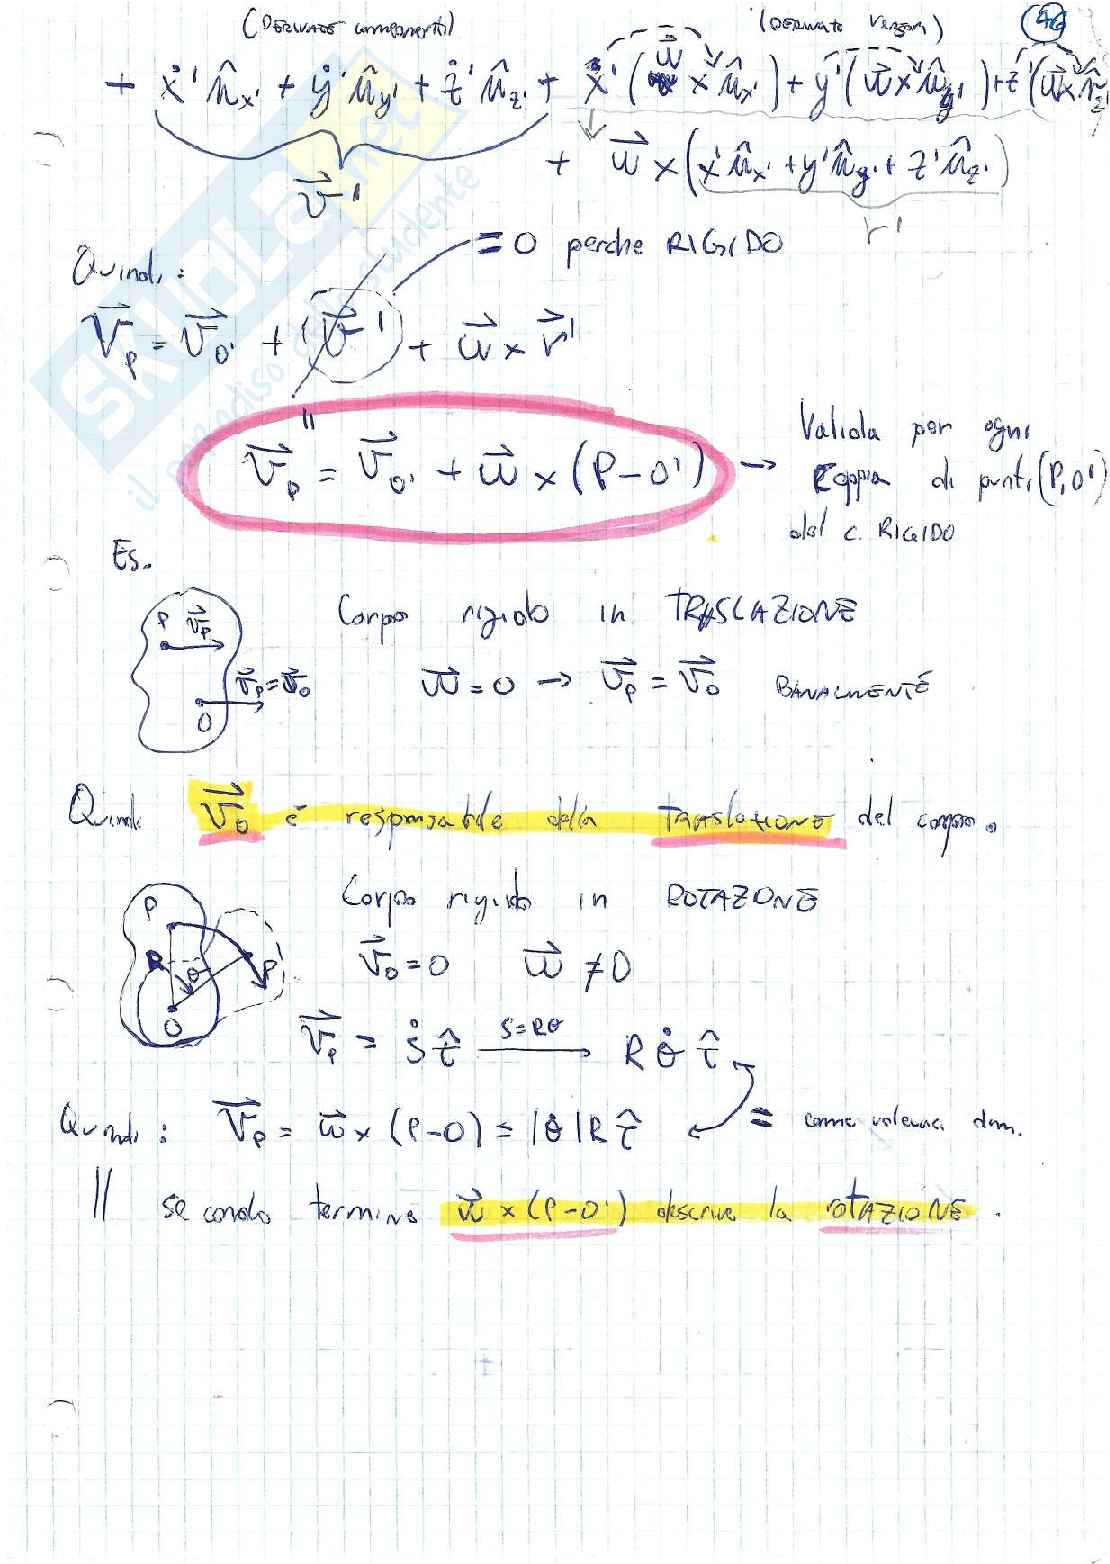 (DERIVATE componenti) (DERIVATE VERSORI) 46
+ ẋ' û_x' + ẏ' û_y' + ż' û_z' + x' (ω⃗ × û_x') + y' (ω⃗ × û_y') + z' (ω⃗ × û_z')
v⃗' + ω⃗ × (x' û_x' + y' û_y' + z' û_z')
r'
= 0 perche RIGIDO
Quindi:
v⃗_P = v⃗_O' + (v⃗') + ω⃗ × r⃗'
v⃗_P = v⃗_O' + ω⃗ × (P - O') → Valida per ogni
coppia di punti (P, O')
del c. RIGIDO
Es.
P v⃗_P Corpo rigido in TRASLAZIONE
v⃗_P = v⃗_O ω⃗ = 0 → v⃗_P = v⃗_O BANALMENTE
O
Quindi v⃗_O è responsabile della TRASLAZIONE del corpo.
P Corpo rigido in ROTAZIONE
R θ P v⃗_O = 0 ω⃗ ≠ 0
O
v⃗_P = ṡ τ̂ S=Rθ → R θ̇ τ̂
Quindi: v⃗_P = ω⃗ × (P - O) = |θ̇| R τ̂ = come volevasi dim.
Il secondo termine ω⃗ × (P - O') descrive la ROTAZIONE.
SKUOLA.net
il paradiso dello studente